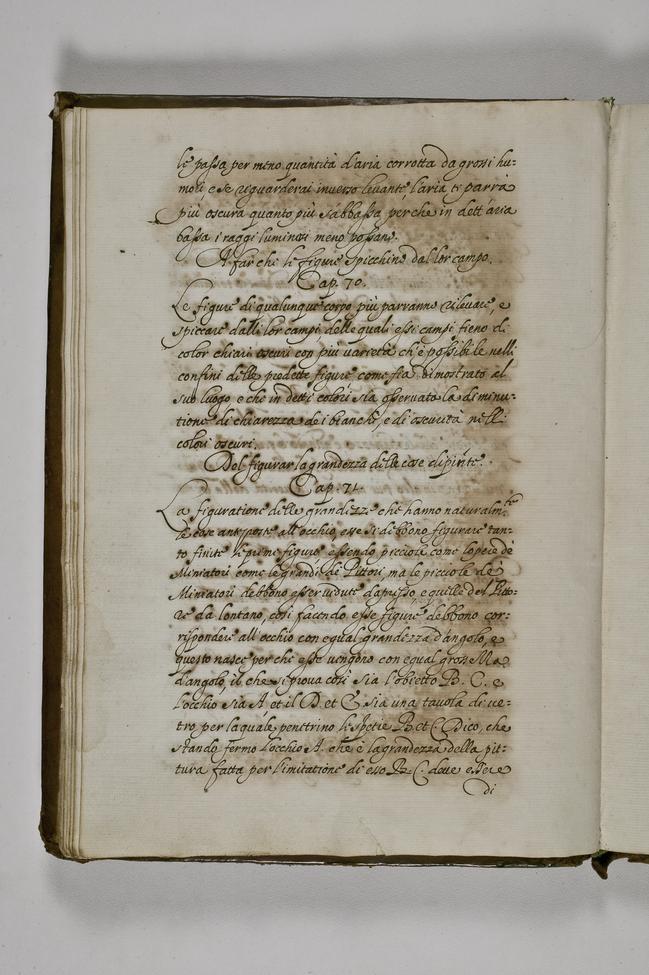 le passa per meno quantità d'aria corrotta da grossi hu=
mori, e se riguarderai inverso levante l'aria ti parrà
più oscura quanto più s'abbassa, perche in dett'aria
bassa i raggi luminosi meno possano.
A far che le figure spicchino dal lor campo.
Cap. 70.
Le figure di qualunque corpo più parranno rilevare, e
spiccare dalli lor campi, delle quali essi campi fieno di
color chiari oscuri con più varietà ch'è possibile nelli
confini delle predette figure come fia dimostrato al
suo luogo e che in detti colori sia osservato la diminu=
tione di chiarezza de i bianchi, e di oscurità nelli
colori oscuri.
Del figurar la grandezza delle cose dipinte.
Cap. 71.
La figuratione delle grandezze che hanno naturalmte
le cose anteposte all'occhio esse si debbono figurare tan=
to finite le prime figure essendo picciole come l'opere de
Miniatori come le grandi de Pittori, ma le picciole de
Miniatori debbono esser vedute d'apresso, e quelle del Pitto=
re da lontano, così facendo esse figure debbono cor=
rispondere all'occhio con egual grandezza d'angolo, e
questo nasce perche esse vengono con egual grossezza
d'angolo, il che si prova così sia l'obietto B. C. e
l'occhio sia A. et il D. et E. sia una tavola di ve=
tro per la quale penetrino le spetie B. et C. Dico, che
stando fermo l'occhio A. che è la grandezza della pit=
tura fatta per l'imitatione di esso B. C. deve essere
di